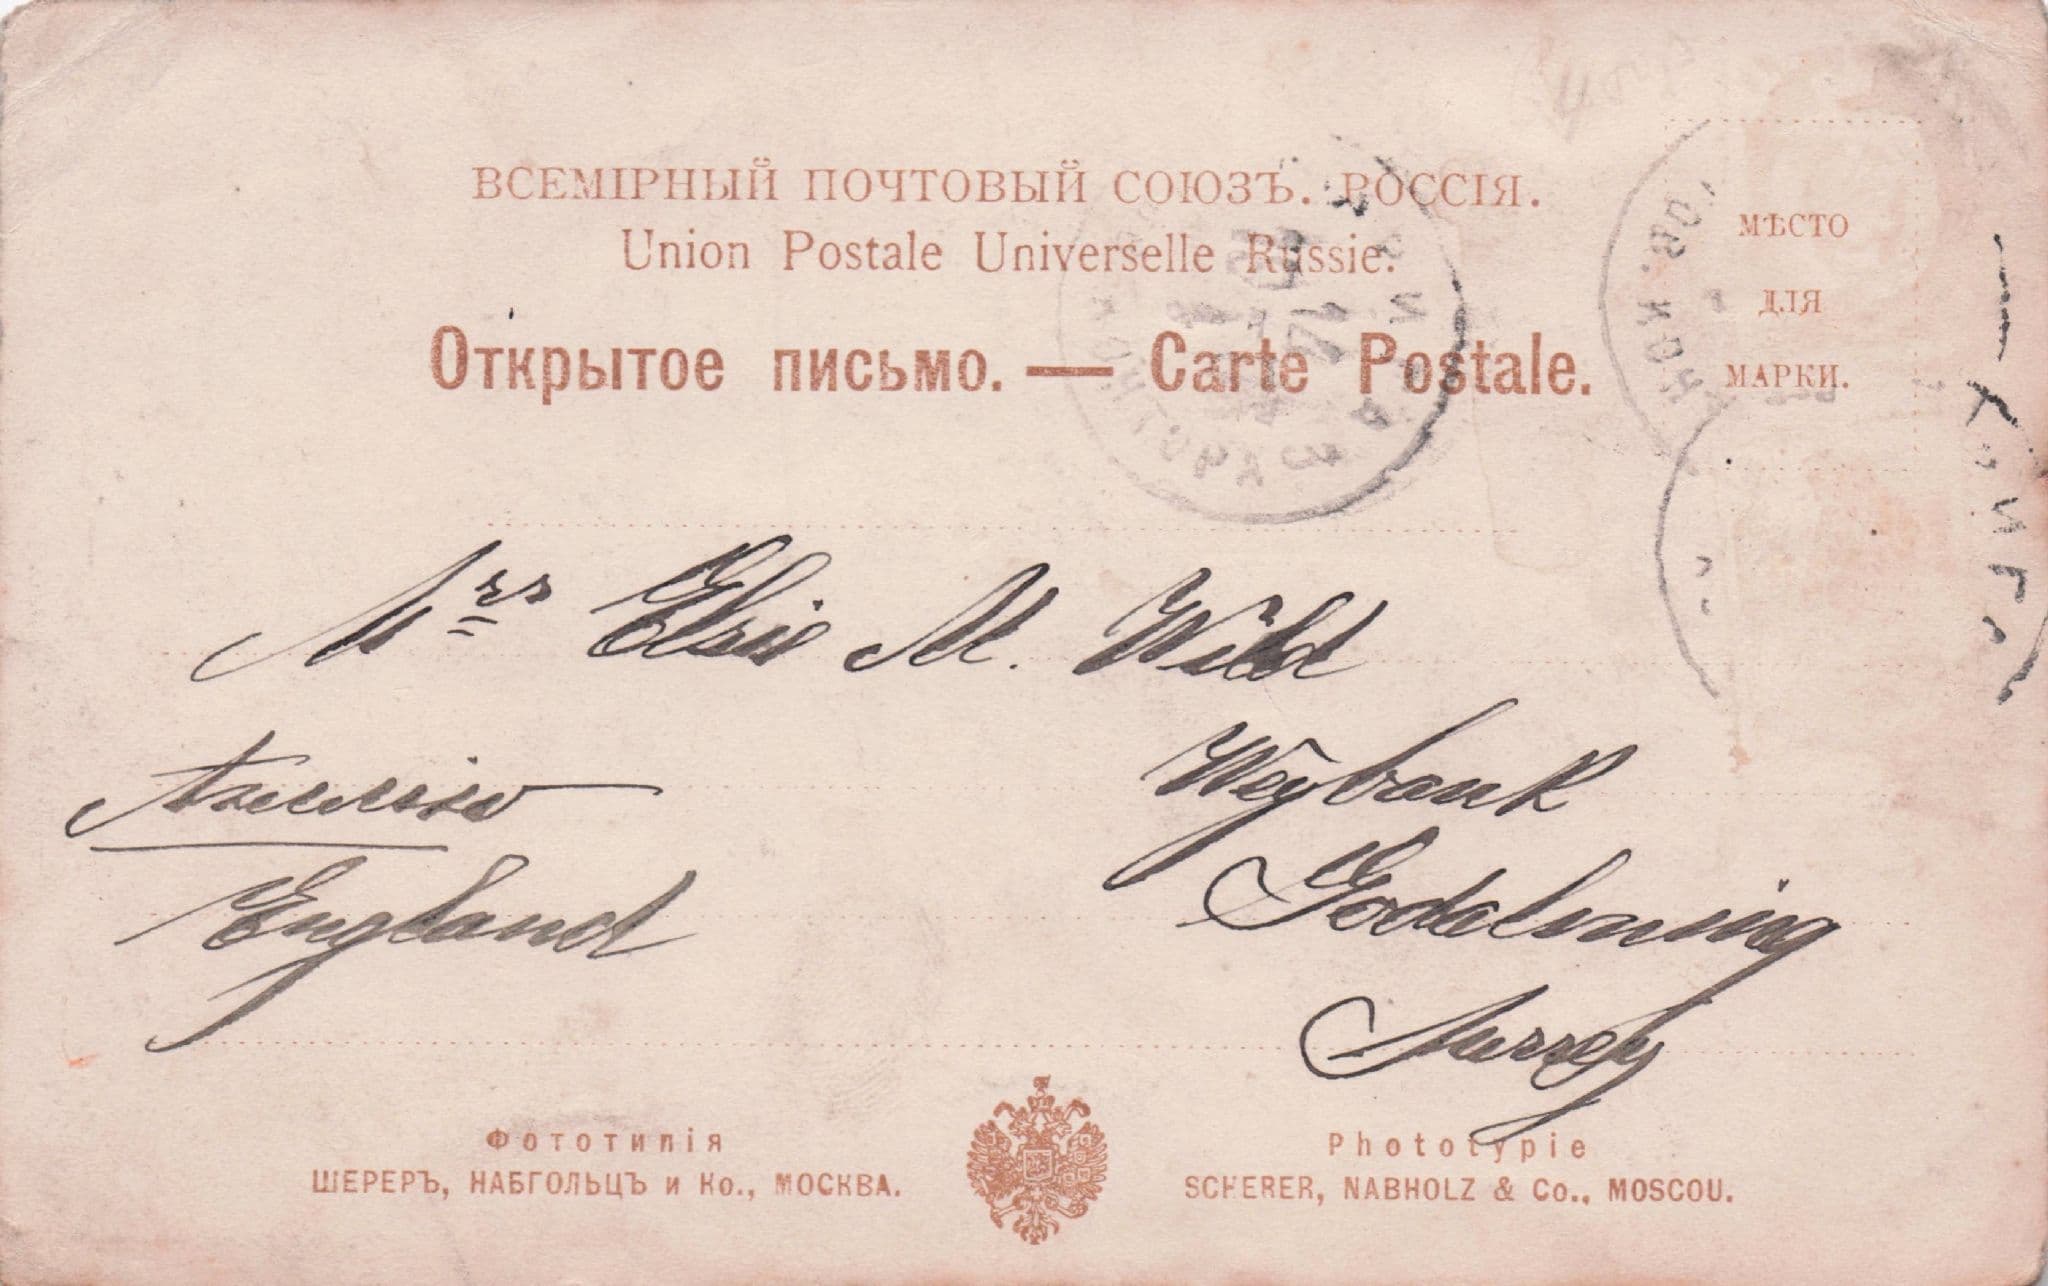 ВСЕМІРНЫЙ ПОЧТОВЫЙ СОЮЗЪ. РОССІЯ.
Union Postale Universelle Russie.
Открытое письмо. — Carte Postale.
МѢСТО
ДЛЯ
МАРКИ.
Mrs Elsie M. Wild
Weybank
Godalming
Surrey
Англію
England
Фототипія
ШЕРЕРЪ, НАБГОЛЬЦЪ и Ко., МОСКВА.
Phototypie
SCHERER, NABHOLZ & Co., MOSCOU.